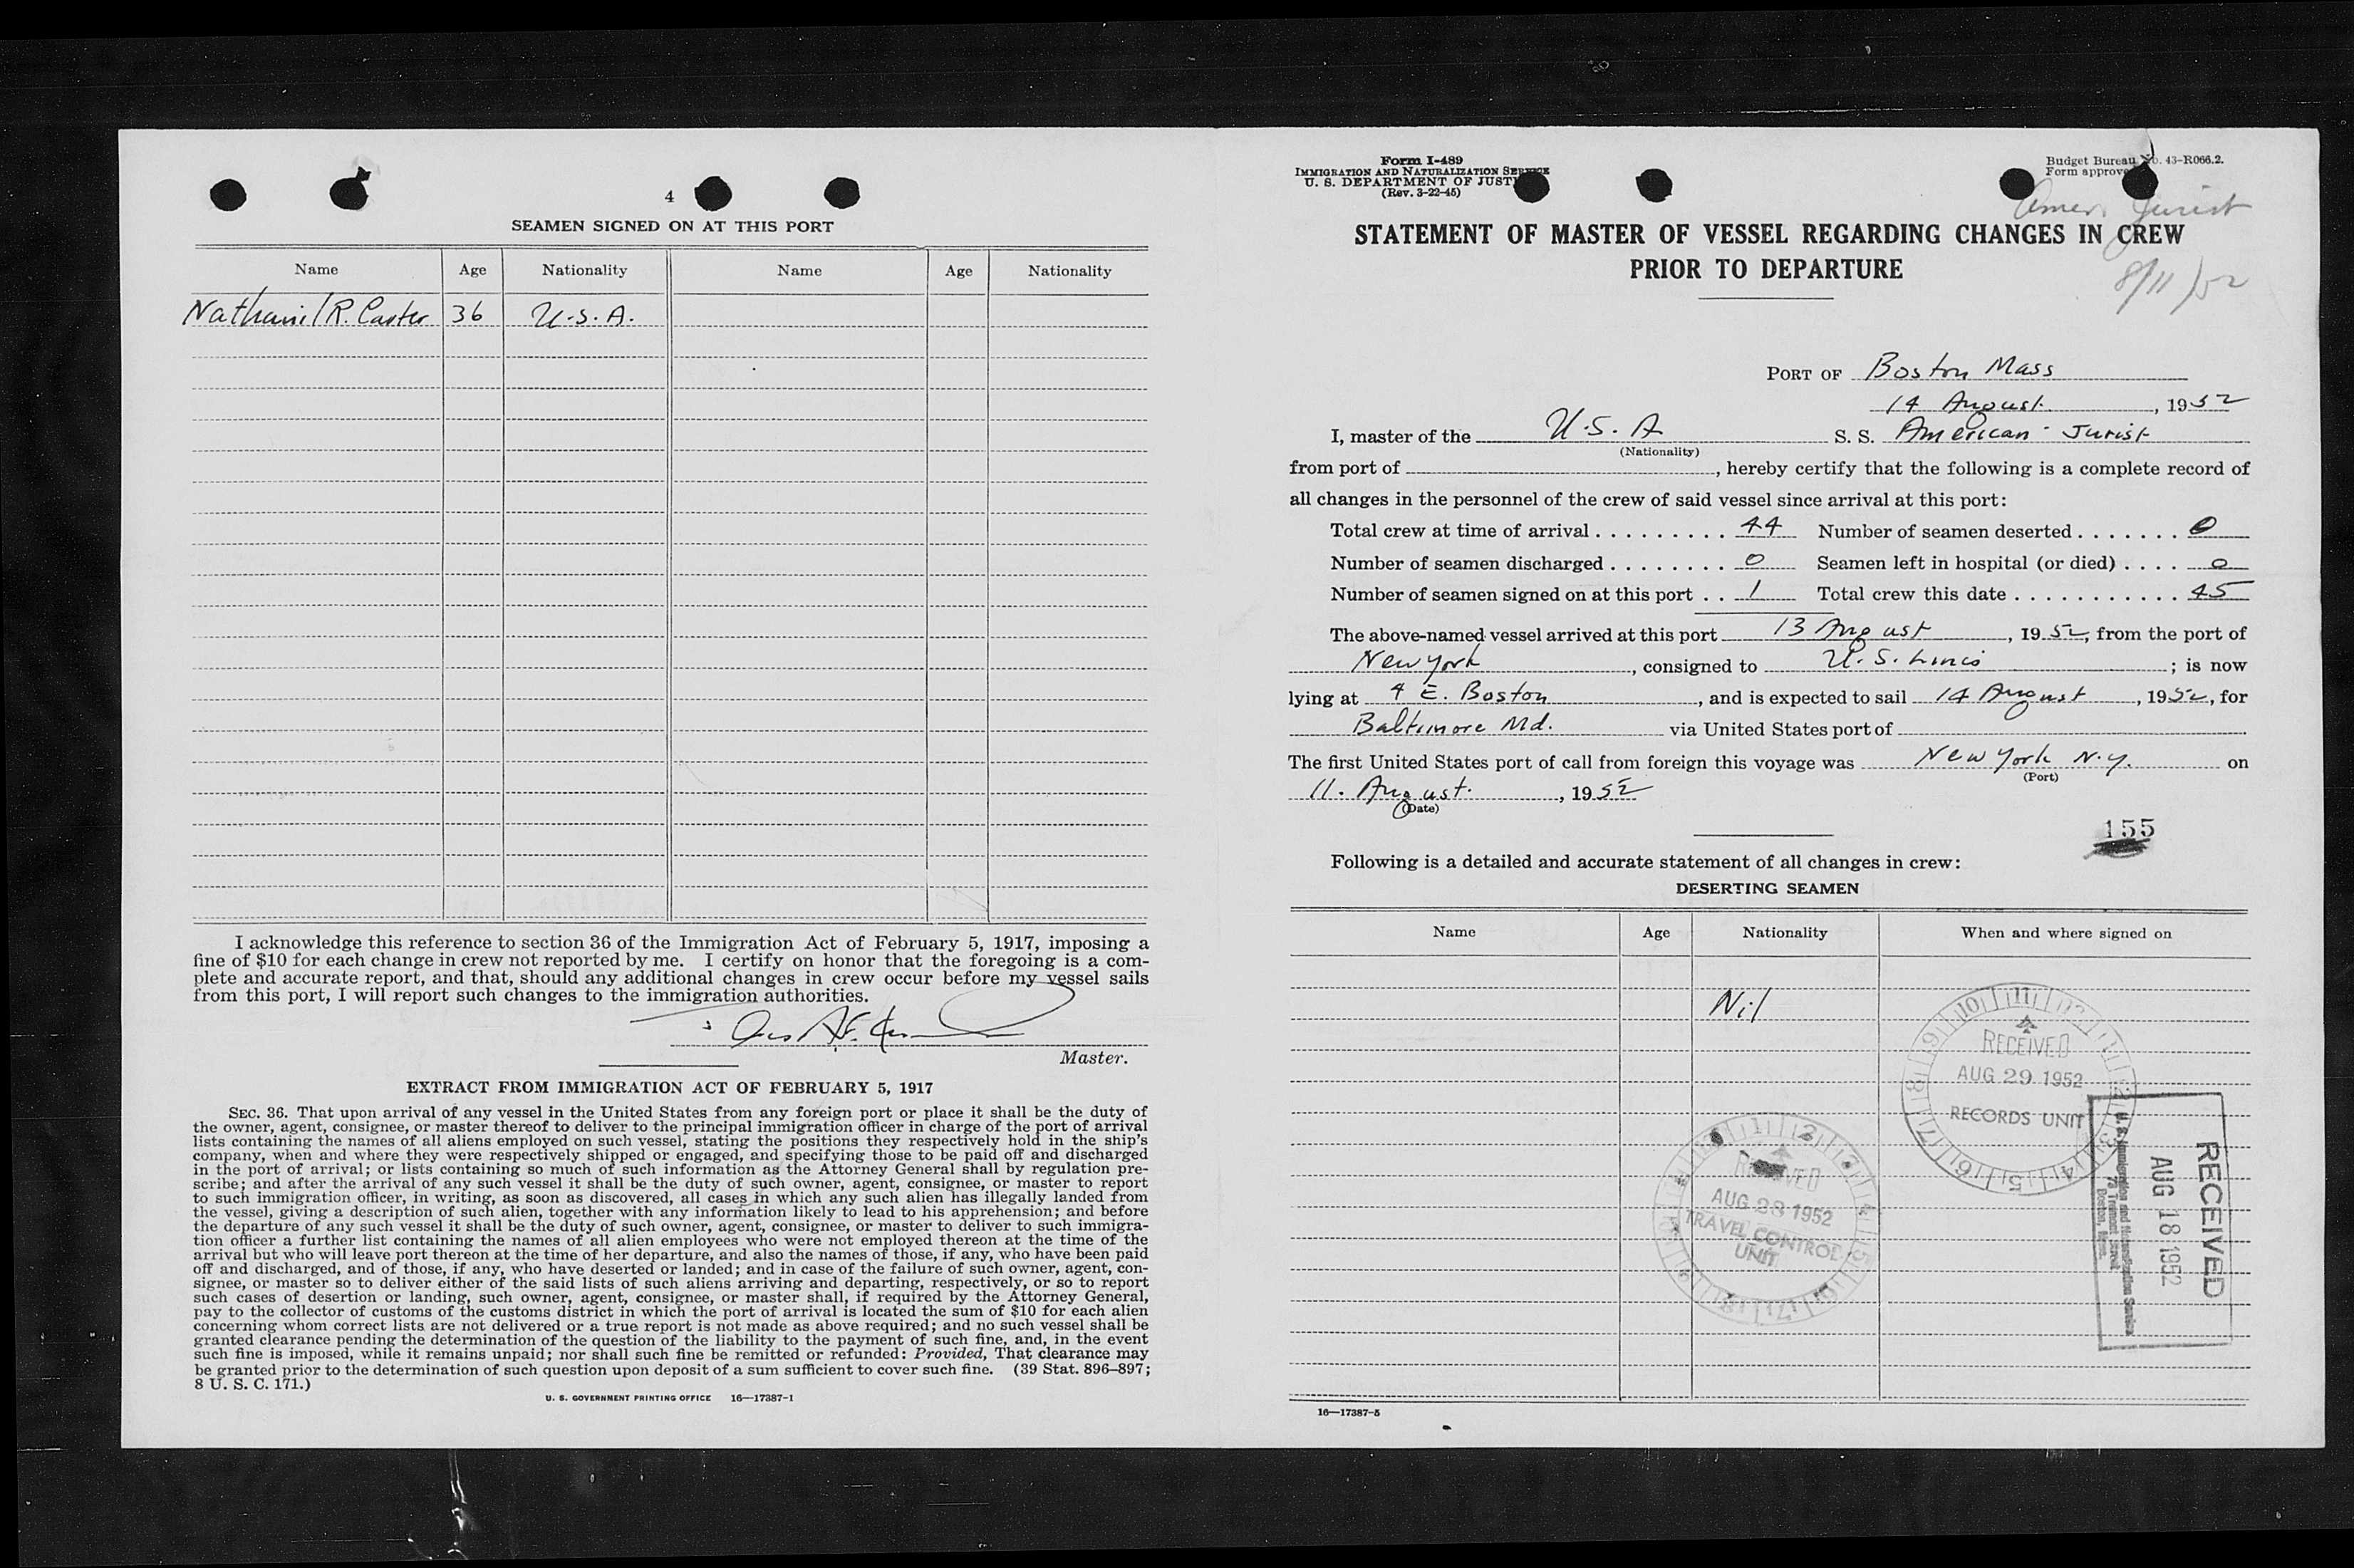 4
SEAMEN SIGNED ON AT THIS PORT
Name Age Nationality Name Age Nationality
R. 36 U.S.A.
I acknowledge this reference to section 36 of the Immigration Act of February 5, 1917, imposing a
fine of $10 for each change in crew not reported by me. I certify on honor that the foregoing is a com-
plete and accurate report, and that, should any additional changes in crew occur before my vessel sails
from this port, I will report such changes to the immigration authorities.
Master.
EXTRACT FROM IMMIGRATION ACT OF FEBRUARY 5, 1917
SEC. 36. That upon arrival of any vessel in the United States from any foreign port or place it shall be the duty of
the owner, agent, consignee, or master thereof to deliver to the principal immigration officer in charge of the port of arrival
lists containing the names of all aliens employed on such vessel, stating the positions they respectively hold in the ship's
company, when and where they were respectively shipped or engaged, and specifying those to be paid off and discharged
in the port of arrival; or lists containing so much of such information as the Attorney General shall by regulation pre-
scribe; and after the arrival of any such vessel it shall be the duty of such owner, agent, consignee, or master to report
to such immigration officer, in writing, as soon as discovered, all cases in which any such alien has illegally landed from
the vessel, giving a description of such alien, together with any information likely to lead to his apprehension; and before
the departure of any such vessel it shall be the duty of such owner, agent, consignee, or master to deliver to such immigra-
tion officer a further list containing the names of all alien employees who were not employed thereon at the time of the
arrival but who will leave port thereon at the time of her departure, and also the names of those, if any, who have been paid
off and discharged, and of those, if any, who have deserted or landed; and in case of the failure of such owner, agent, con-
signee, or master so to deliver either of the said lists of such aliens arriving and departing, respectively, or so to report
such cases of desertion or landing, such owner, agent, consignee, or master shall, if required by the Attorney General,
pay to the collector of customs of the customs district in which the port of arrival is located the sum of $10 for each alien
concerning whom correct lists are not delivered or a true report is not made as above required; and no such vessel shall be
granted clearance pending the determination of the question of the liability to the payment of such fine, and, in the event
such fine is imposed, while it remains unpaid; nor shall such fine be remitted or refunded: Provided, That clearance may
be granted prior to the determination of such question upon deposit of a sum sufficient to cover such fine. (39 Stat. 896–897;
8 U. S. C. 171.)
U. S. GOVERNMENT PRINTING OFFICE 16—17387-1
Form I-489
IMMIGRATION AND NATURALIZATION SERVICE
U. S. DEPARTMENT OF JUST
(Rev. 3-22-45)
Budget Bureau No. 43-R066.2.
Form approve
Amer. Jurist
8/11/52
STATEMENT OF MASTER OF VESSEL REGARDING CHANGES IN CREW
PRIOR TO DEPARTURE
PORT OF Boston Mass
14 August, 1952
I, master of the U.S.A S. S. American Jurist
(Nationality)
from port of , hereby certify that the following is a complete record of
all changes in the personnel of the crew of said vessel since arrival at this port:
Total crew at time of arrival . . . . . . . . . 44 Number of seamen deserted . . . . . . . 0
Number of seamen discharged . . . . . . . . 0 Seamen left in hospital (or died) . . . . 0
Number of seamen signed on at this port . . 1 Total crew this date . . . . . . . . . . . 45
The above-named vessel arrived at this port 13 August, 1952, from the port of
New York, consigned to U.S. Lines; is now
lying at 4 E. Boston, and is expected to sail 14 August, 1952, for
Baltimore Md. via United States port of
The first United States port of call from foreign this voyage was New York N.Y. on
(Port)
11. August, 1952
(Date)
155
Following is a detailed and accurate statement of all changes in crew:
DESERTING SEAMEN
Name Age Nationality When and where signed on
Nil
RECEIVED
AUG 29 1952
RECORDS UNIT
RECEIVED
AUG 28 1952
TRAVEL CONTROL
UNIT
RECEIVED
AUG 18 1952
U. S. Immigration and Naturalization Service
16—17387-5